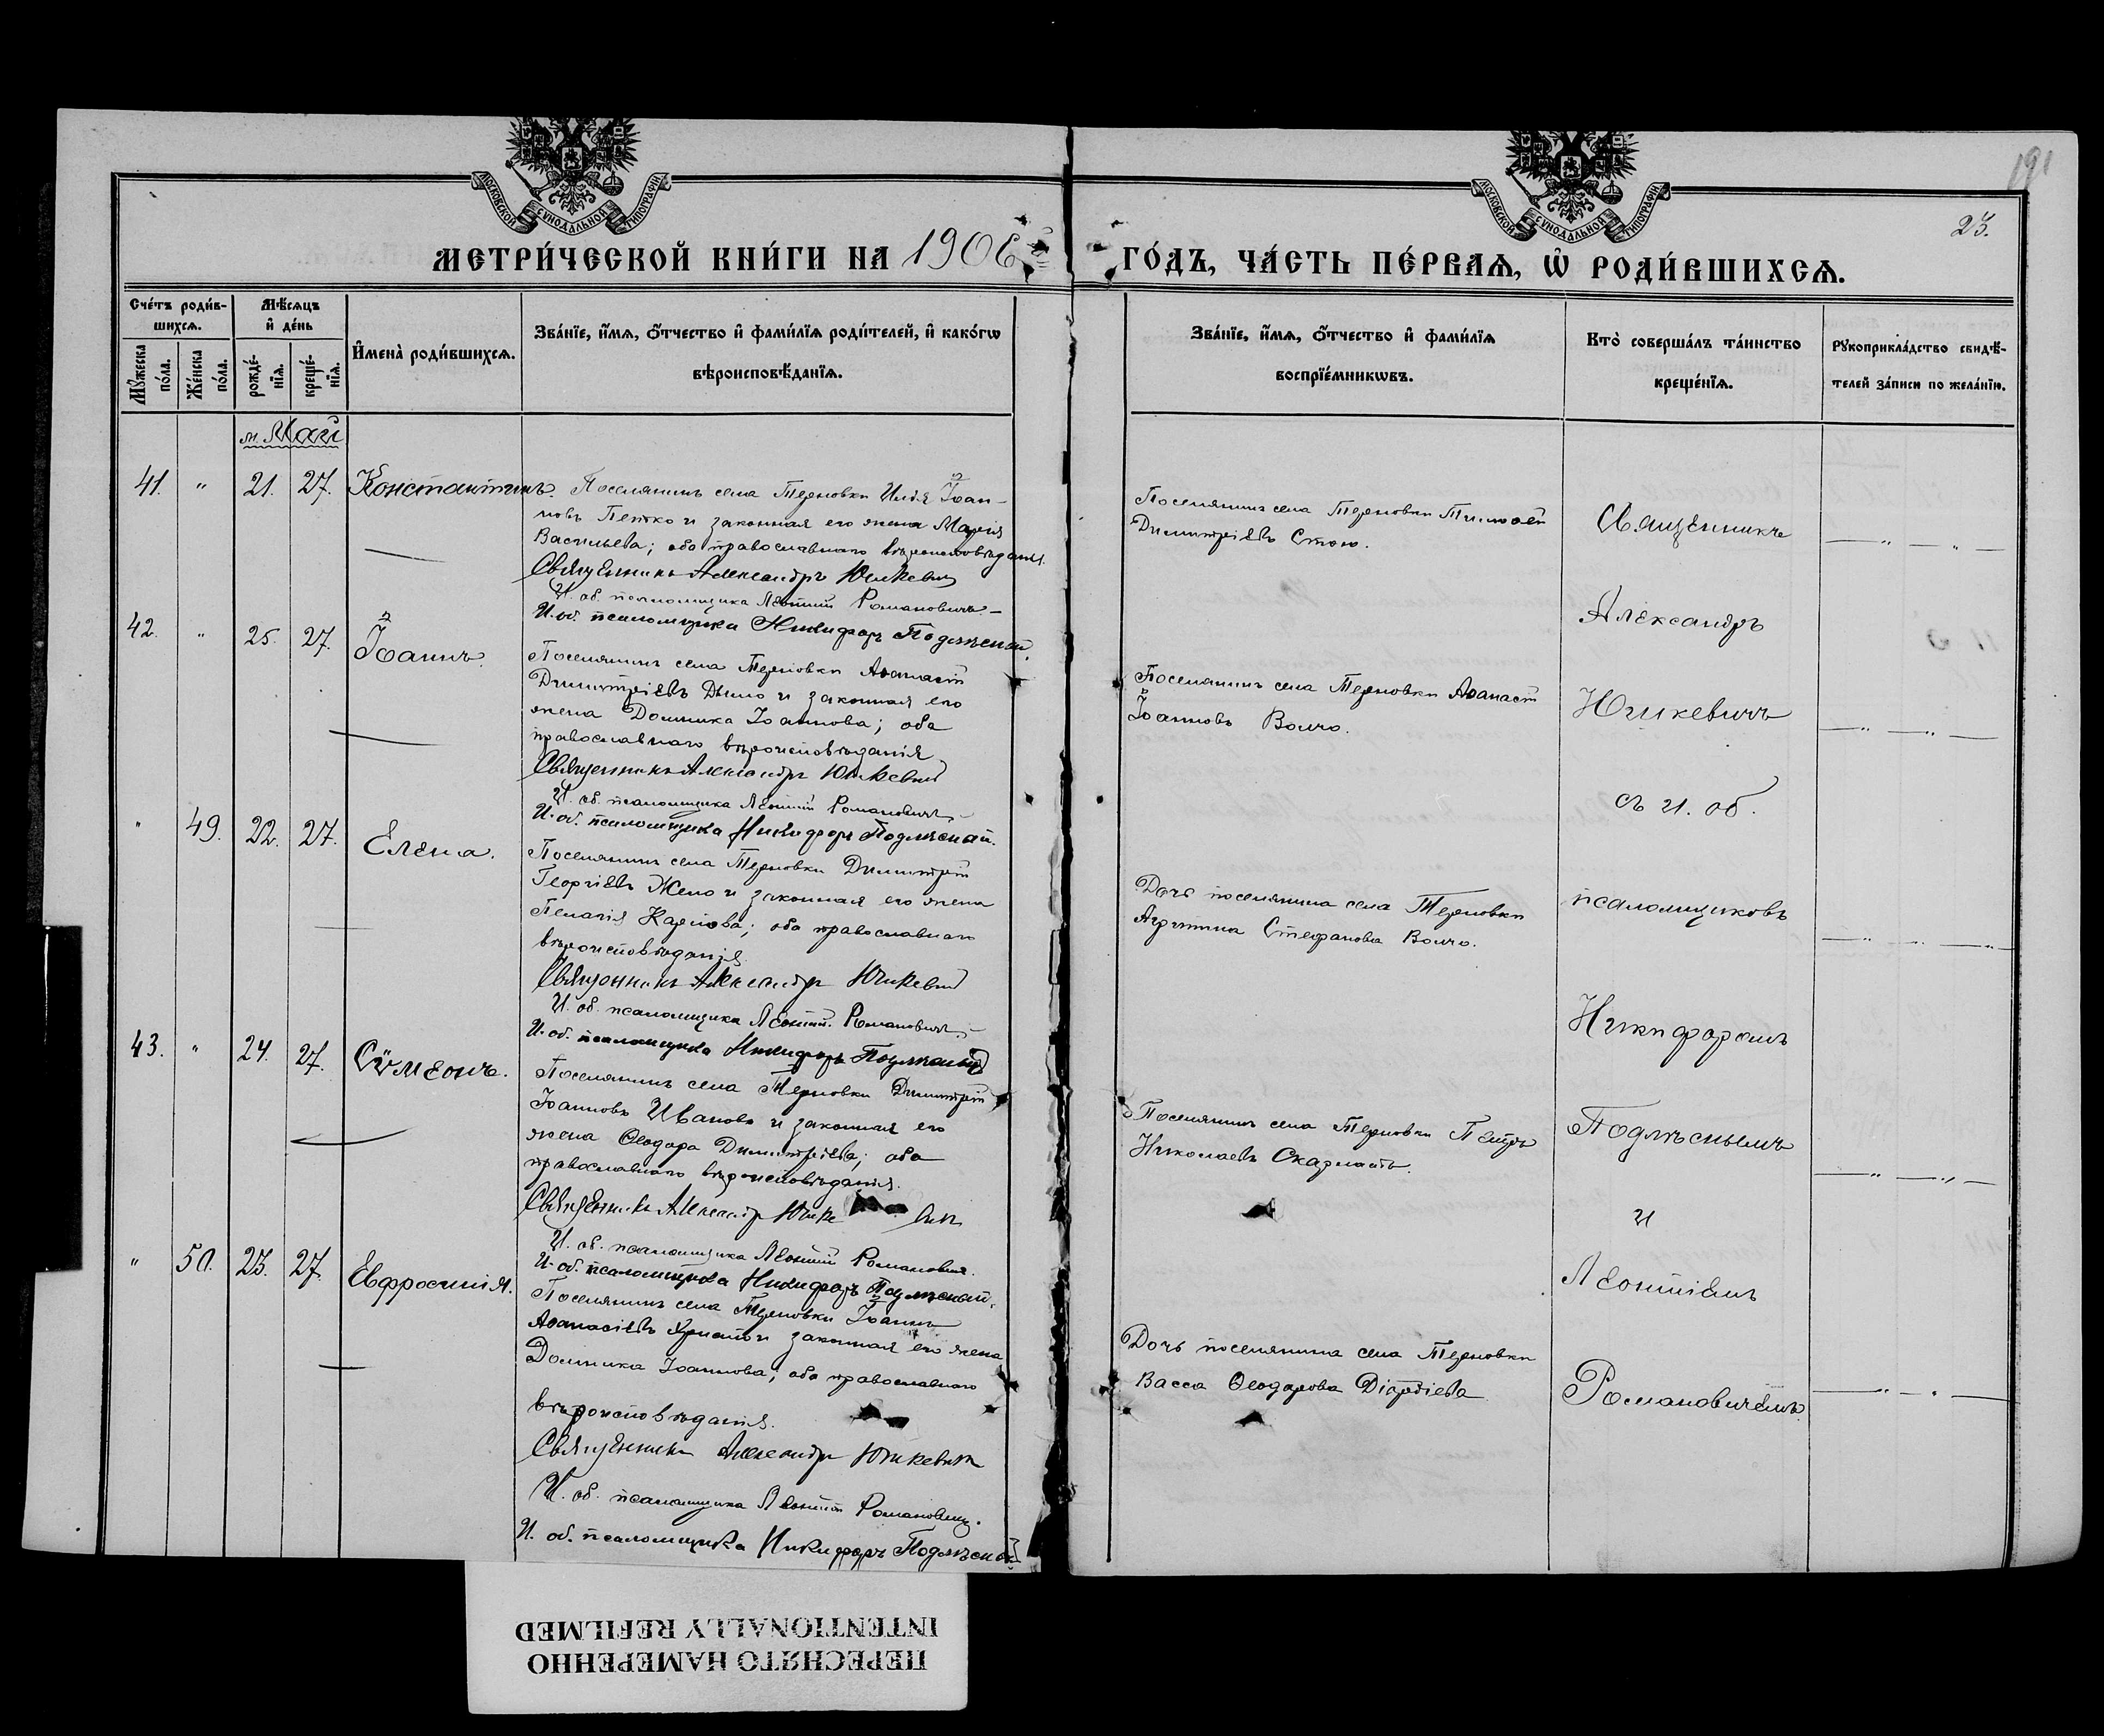 191
23.
МОСКОВСКОЙ СѴНОДАЛЬНОЙ ТИПОГРАФІИ
МОСКОВСКОЙ СѴНОДАЛЬНОЙ ТИПОГРАФІИ
МЕТРИ́ЧЕСКОЙ КНИ́ГИ НА 1906
ГО́ДЪ, ЧА́СТЬ ПЕ́РВАѦ, Ѡ҆ РОДИ́ВШИХСѦ.
Сче́тъ роди́в-
шихсѧ.
Мꙋ́жеска по́ла.
Же́нска по́ла.
Мѣ́сѧцъ
и҆ де́нь
рожде́-
нїѧ.
креще́-
нїѧ.
И҆мена̀ роди́вшихсѧ.
Зва́нїе, и҆́мѧ, ѻ҆́тчество и҆ фами́лїѧ роди́телей, и҆ како́гѡ
вѣроисповѣ́данїѧ.
Зва́нїе, и҆́мѧ, ѻ҆́тчество и҆ фами́лїѧ
воспрїе́мникѡвъ.
Кто̀ соверша́лъ та́инство
креще́нїѧ.
Рꙋкоприкла́дство свидѣ́-
телей за́писи по жела́нїю.
м. Май
41. " 21. 27. Константинъ.
Поселянинъ села Терновки Илія Іоан-
новъ Петко и законная его жена Марія
Васильева; оба православнаго вѣроисповѣданія.
Священникъ Александръ Юшкевич
И. об. псаломщика Леонтій Романовичъ.
И. об. псаломщика Никифоръ Подлѣсный.
Поселянинъ села Терновки Тимоѳей
Димитріевъ Стою.
42. " 25. 27. Іоаннъ.
Поселянинъ села Терновки Аѳанасій
Димитріевъ Дымо и законная его
жена Домника Іоаннова; оба
православнаго вѣроисповѣданія
Священникъ Александръ Юшкевич
И. об. псаломщика Леонтій Романовичъ
И. об. псаломщика Никифоръ Подлѣсный.
Поселянинъ села Терновки Аѳанасій
Іоанновъ Волчо.
" 49. 22. 27. Елена.
Поселянинъ села Терновки Димитрій
Георгіевъ Жело и законная его жена
Пелагія Карпова; оба православнаго
вѣроисповѣданія.
Священникъ Александръ Юшкевич
И. об. псаломщика Леонтій Романовичъ
И. об. псаломщика Никифоръ Подлѣсный
Дочь поселянина села Терновки
Агрипина Стефанова Волчо.
43. " 24. 27. Сѵмеонъ.
Поселянинъ села Терновки Димитрій
Іоанновъ Ивановъ и законная его
жена Ѳеодора Димитріева; оба
православнаго вѣроисповѣданія.
Священникъ Александръ Юшке вич
И. об. псаломщика Леонтій Романовичъ.
И. об. псаломщика Никифоръ Подлѣсный.
Поселянинъ села Терновки Петръ
Николаевъ Скарлатъ.
" 50. 23. 27. Евфросинія.
Поселянинъ села Терновки Іоаннъ
Аѳанасіевъ Христо и законная его жена
Домника Іоаннова; оба православнаго
вѣроисповѣданія.
Священникъ Александръ Юшкевич
И. об. псаломщика Леонтій Романовичъ.
И. об. псаломщика Никифоръ Подлѣсный
Дочь поселянина села Терновки
Васса Ѳеодорова
Священникъ
Александръ
Юшкевичъ
съ и. об.
псаломщиковъ
Никифоромъ
Подлѣснымъ
и
Леонтіемъ
Романовичемъ.
ПЕРЕСНЯТО НАМЕРЕННО
INTENTIONALLY REFILMED